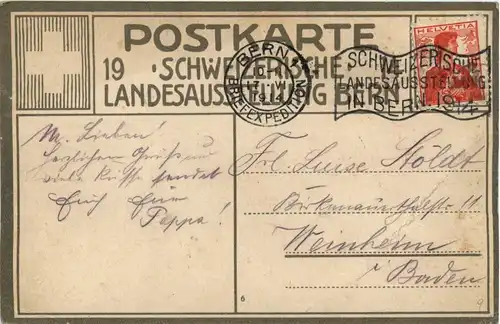 POSTKARTE
HELVETIA
19 · SCHWEIZERISCHE
LANDESAUSSTELLUNG BERN
BERN
1914
BRIEFEXPEDITION
SCHWEIZERISCHE
LANDESAUSSTELLUNG
IN BERN 1914
M. Lieben!
Herzlichen Gruss und
viele Küsse sendet
Euch Euer
Peppa!
Frl. Luise Stöldt
11
Weinheim
i/Baden
6
9